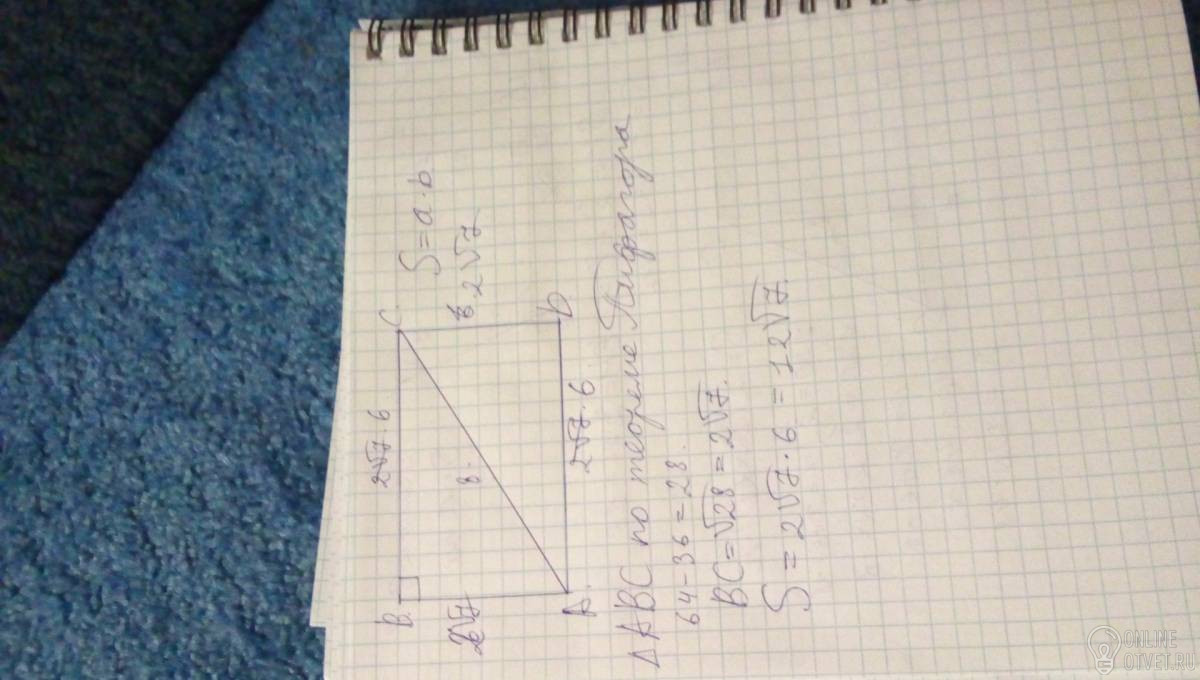 B
2√7 · 6
C
S = a · b
2√7
8
2√7
A
2√7 · 6
D
Δ ABC по теореме Пифагора
64 - 36 = 28.
BC = √28 = 2√7.
S = 2√7 · 6 = 12√7.
ONLINE
OTVET.RU